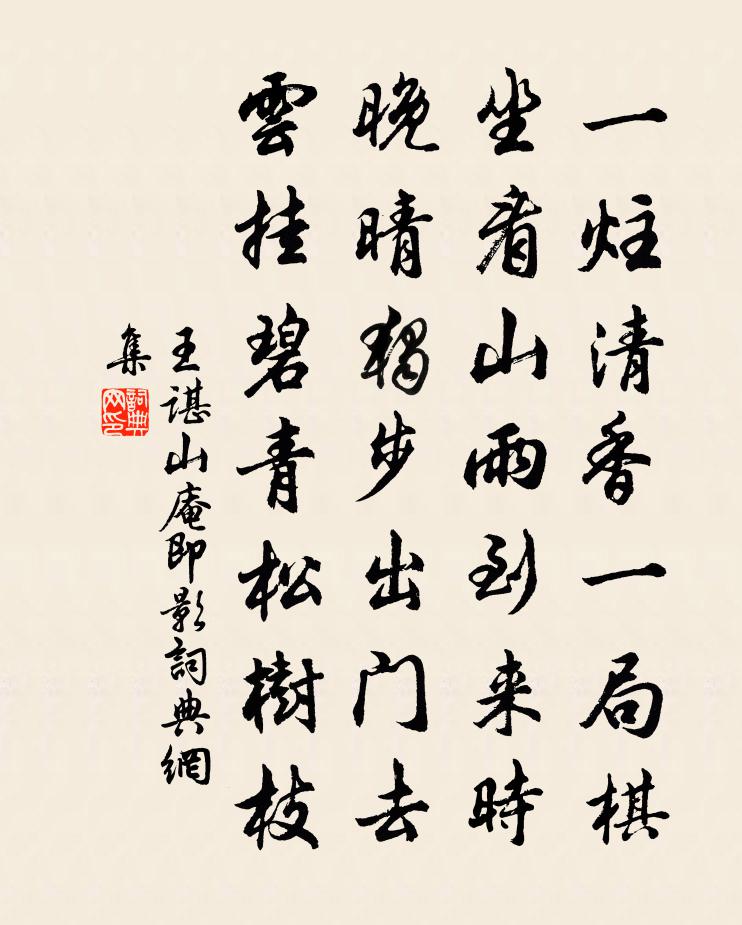 一炷清香一局棋
坐看山雨到来時
晚晴獨步出门去
雲挂碧青松樹枝
王諶山庵即影詞典網
集
詞典網印